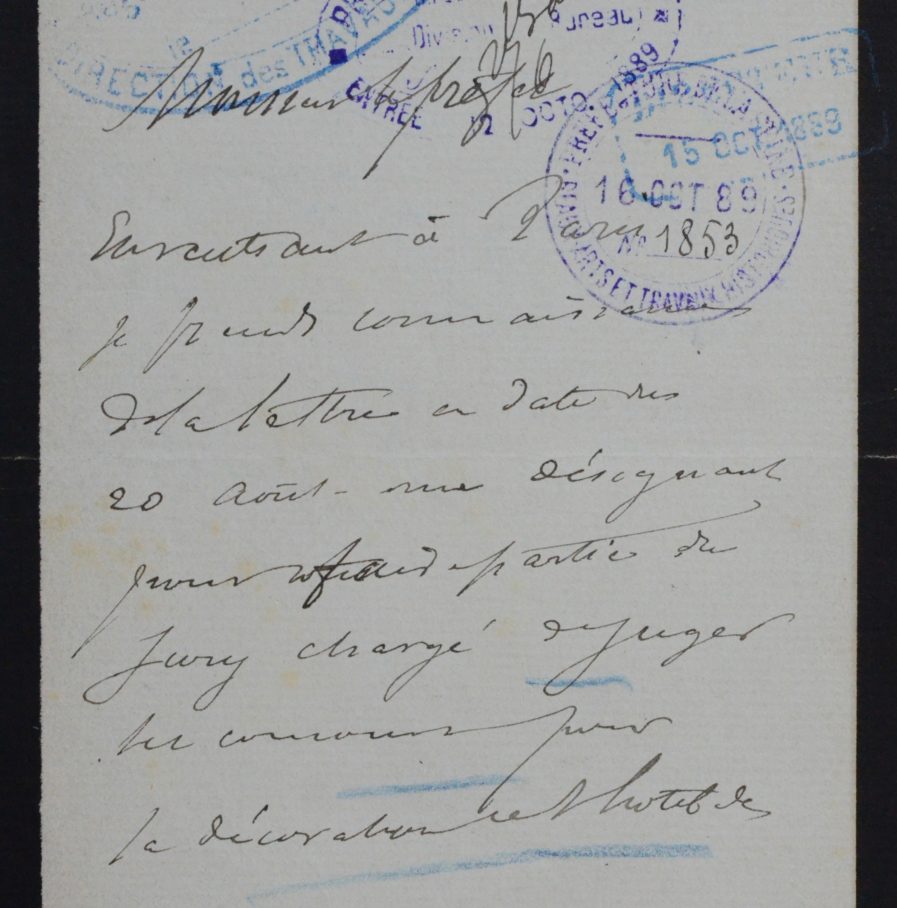 DIRECTION des TRAVAUX
Division Bureau
ENTRÉE 12 OCTO. 1889
Monsieur le préfet
15 OCT 1889
PRÉFECTURE DE LA SEINE
16 OCT 89
No 1853
BEAUX-ARTS ET TRAVAUX HISTORIQUES
En rentrant à Paris
je prends connaissance
de la lettre en date du
20 Août me désignant
pour faire partie du
Jury chargé de juger
les concours pour
la décoration de l'hotel de